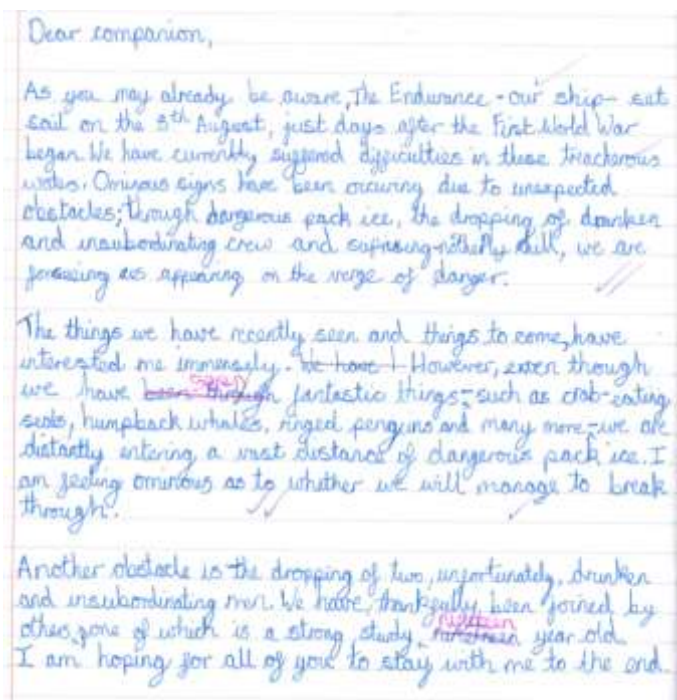 Dear companion,
As you may already be aware, The Endurance - our ship - set
sail on the 8th August, just days after the First World War
began. We have currently suffered difficulties in these treacherous
wates. Ominous signs have been occuring due to unexpected
obstacles; through dangerous pack ice, the dropping of drunken
and insubordinating crew and suprising, we are
as appearing on the verge of danger.
The things we have recently seen and things to come, have
interested me immensely. We have I However, even though
we have been through seen fantastic things - such as crab-eating
seals, humpback whales, ringed penguins and many more - we are
distantly entering a vast distance of dangerous pack ice. I
am feeling ominous as to whether we will manage to break
through.
Another obstacle is the dropping of two, unfortunately, drunken
and insubordinating men. We have, thankfully, been joined by
others, one of which is a strong, study, nineteen year old.
I am hoping for all of you to stay with me to the end.